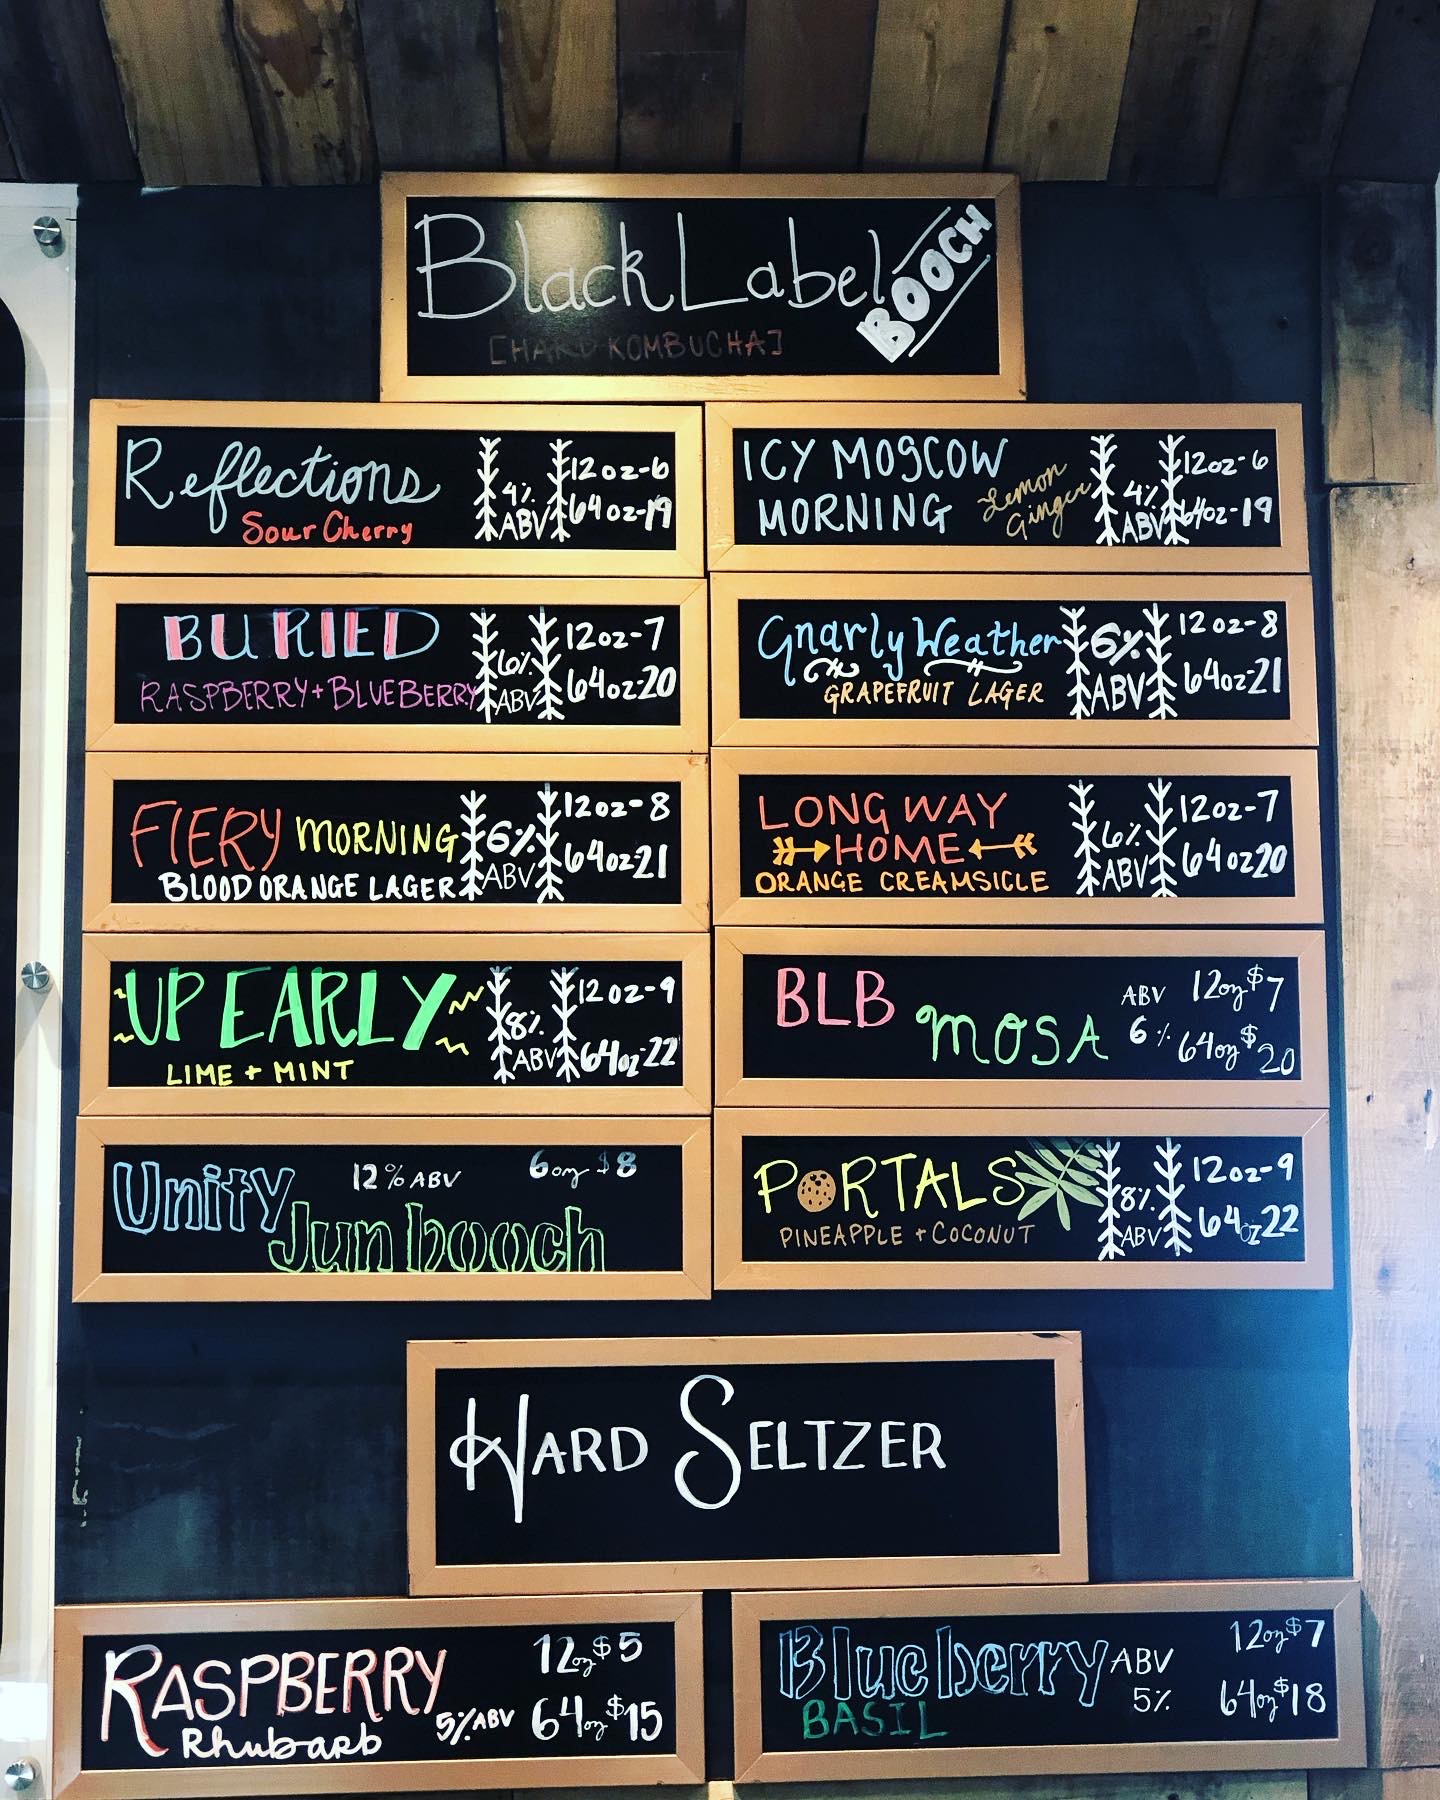 Black Label BOOCH
[HARD KOMBUCHA]
Reflections
Sour Cherry
4% ABV
12oz-6
64oz-19
ICY MOSCOW
MORNING
Lemon Ginger
4% ABV
12oz-6
64oz-19
BURIED
RASPBERRY+BLUEBERRY
6% ABV
12oz-7
64oz-20
Gnarly Weather
GRAPEFRUIT LAGER
6% ABV
12oz-8
64oz-21
FIERY MORNING
BLOOD ORANGE LAGER
6% ABV
12oz-8
64oz-21
LONG WAY
HOME
ORANGE CREAMSICLE
6% ABV
12oz-7
64oz-20
UP EARLY
LIME + MINT
8% ABV
12oz-9
64oz-22
BLB
MOSA
ABV 6%
12oz $7
64oz $20
Unity
Jun booch
12% ABV
6oz $8
PORTALS
PINEAPPLE + COCONUT
8% ABV
12oz-9
64oz-22
HARD SELTZER
RASPBERRY
Rhubarb
5% ABV
12oz $5
64oz $15
Blueberry
BASIL
ABV 5%
12oz $7
64oz $18